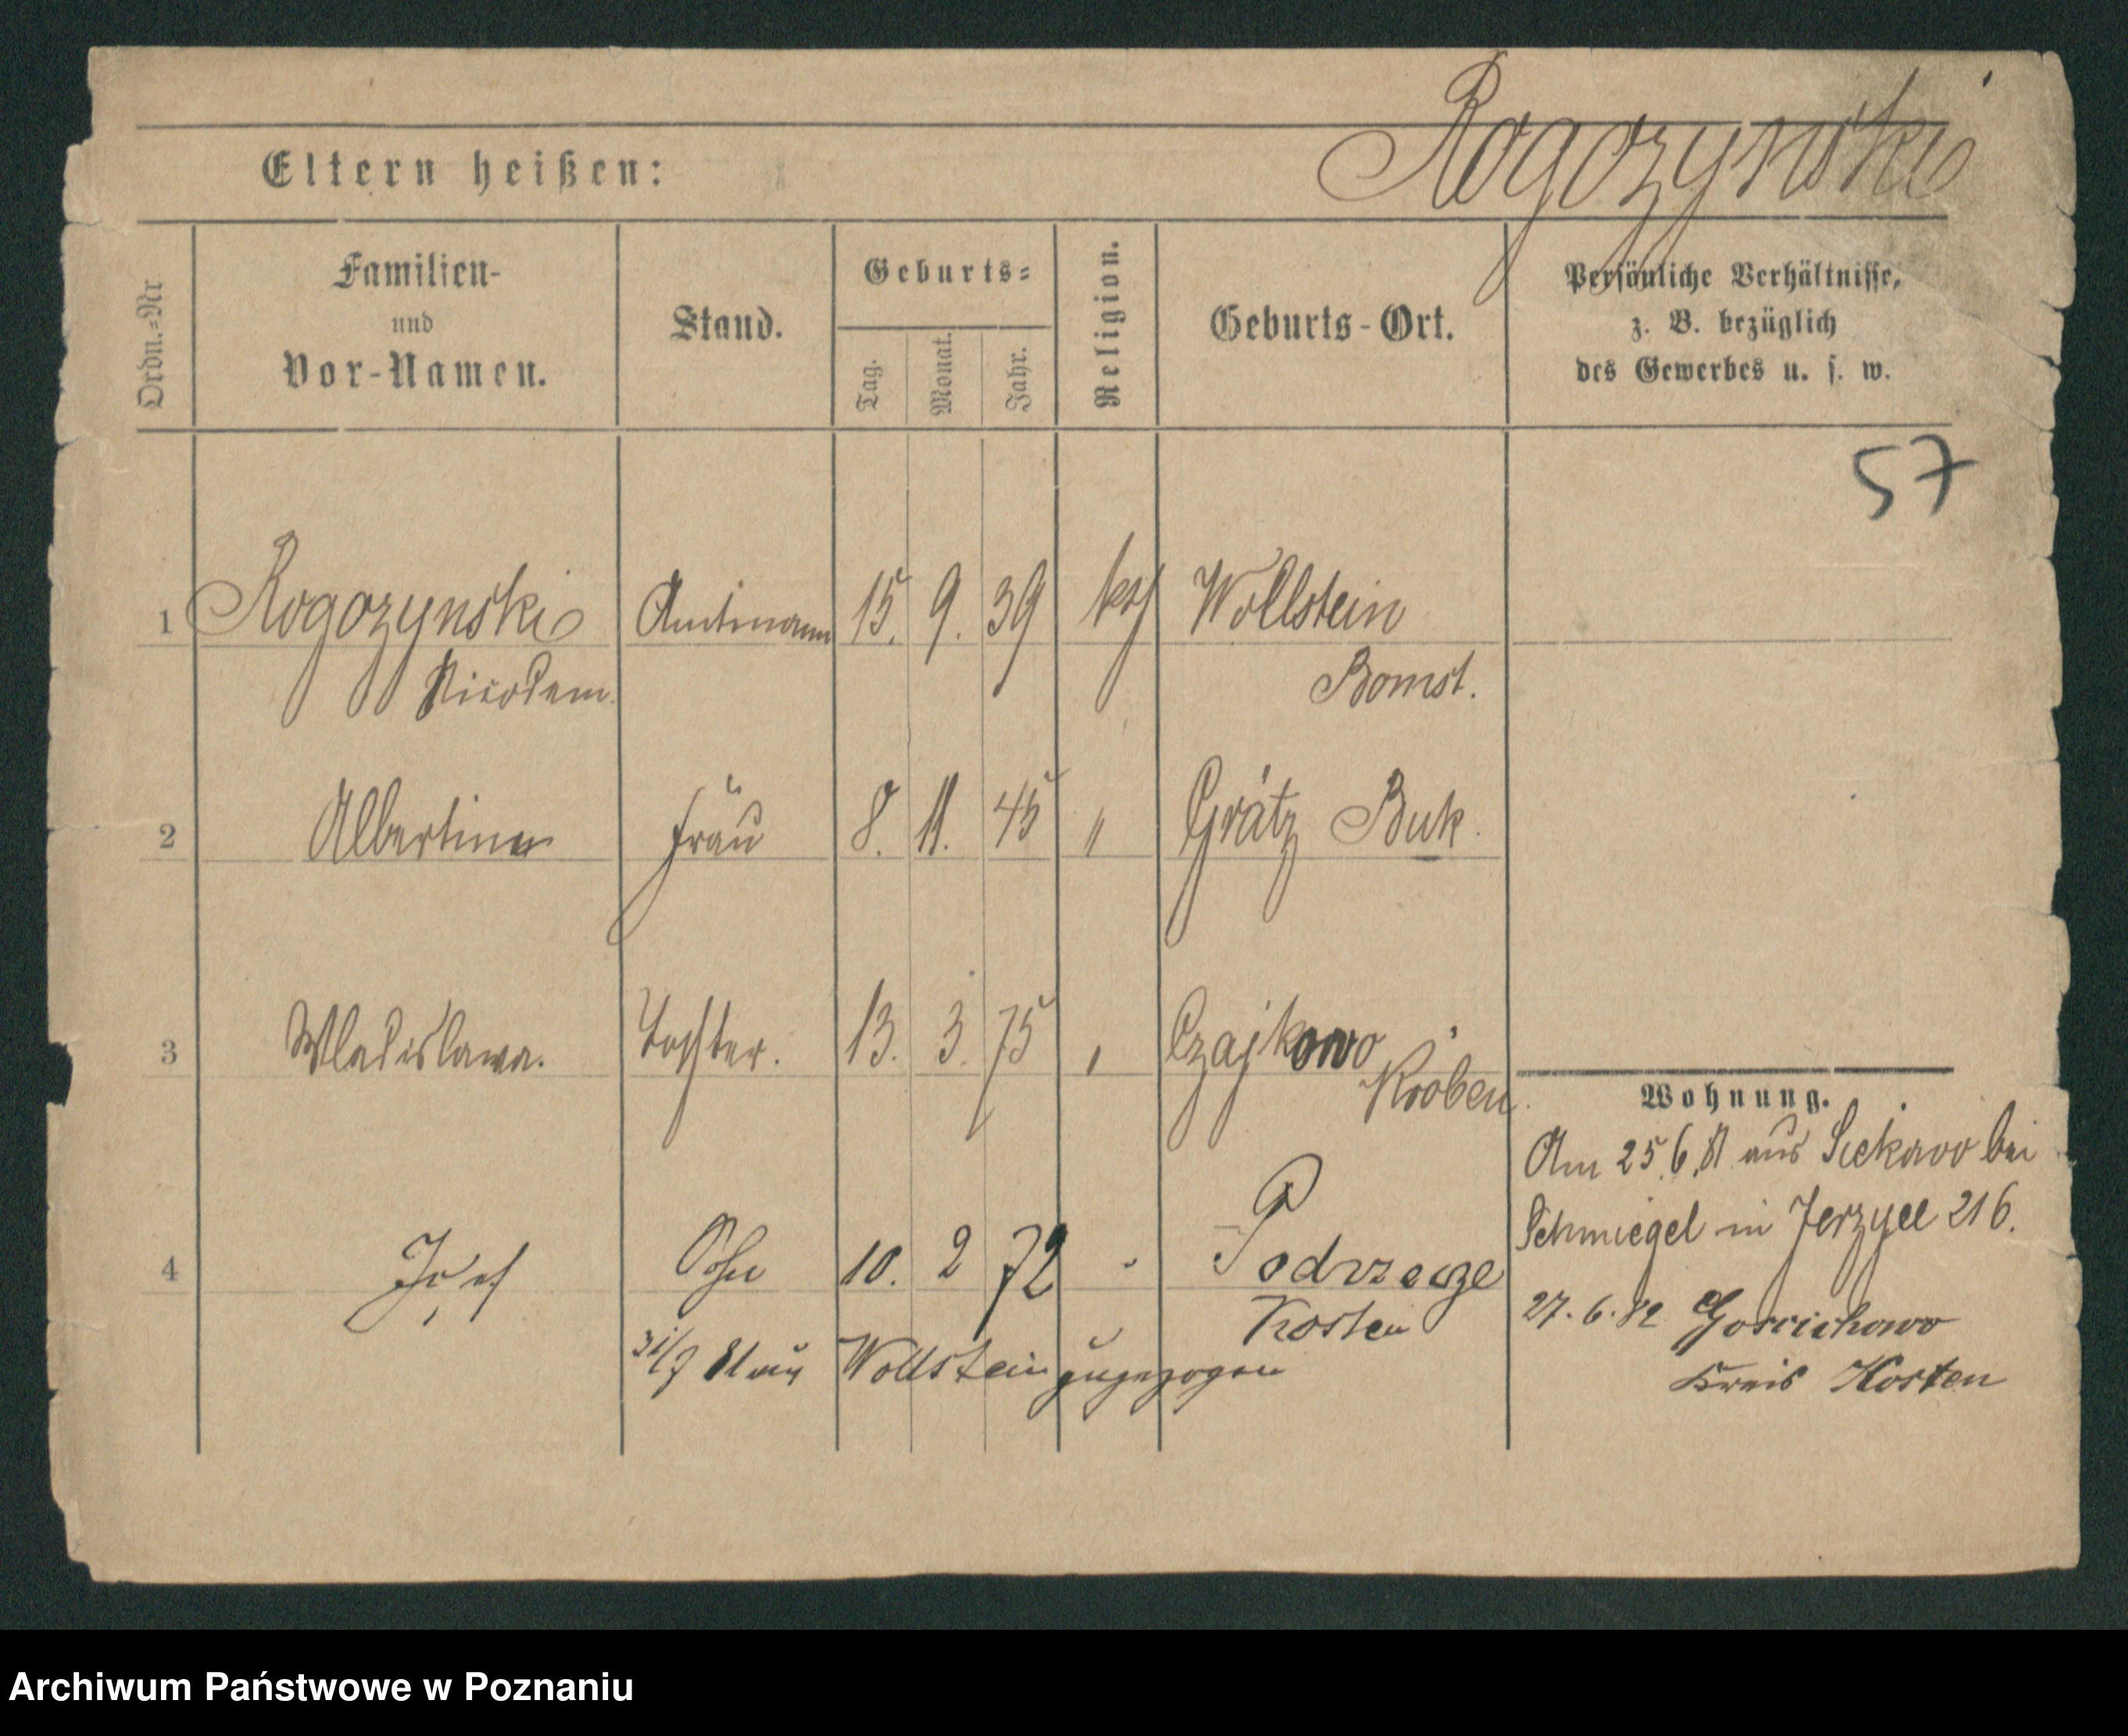 Rogozynski
Eltern heißen:
Ordn.=Nr
Familien-
und
Vor-Namen.
Stand.
Geburts=
Tag.
Monat.
Jahr.
Religion.
Geburts-Ort.
Persönliche Verhältnisse,
z. B. bezüglich
des Gewerbes u. s. w.
57
1 Rogozynski Amtmann 15. 9. 39 kth Wollstein
Nicodem. Bomst.
2 Albertine Frau 8. 11. 45 " Grätz Buk.
3 Wladislawa. Tochter. 13. 3. 75 " Czajkowo
Kröben.
Wohnung.
Am 25.6.81 aus Siekowo bei
Schmiegel in Jerzyce 216.
4 Josef Sohn 10. 2 72 " Podrzecze
Kosten
27.6.82 Gosciehowo
Kreis Kosten
81 aus Wollstein zugezogen
Archiwum Państwowe w Poznaniu